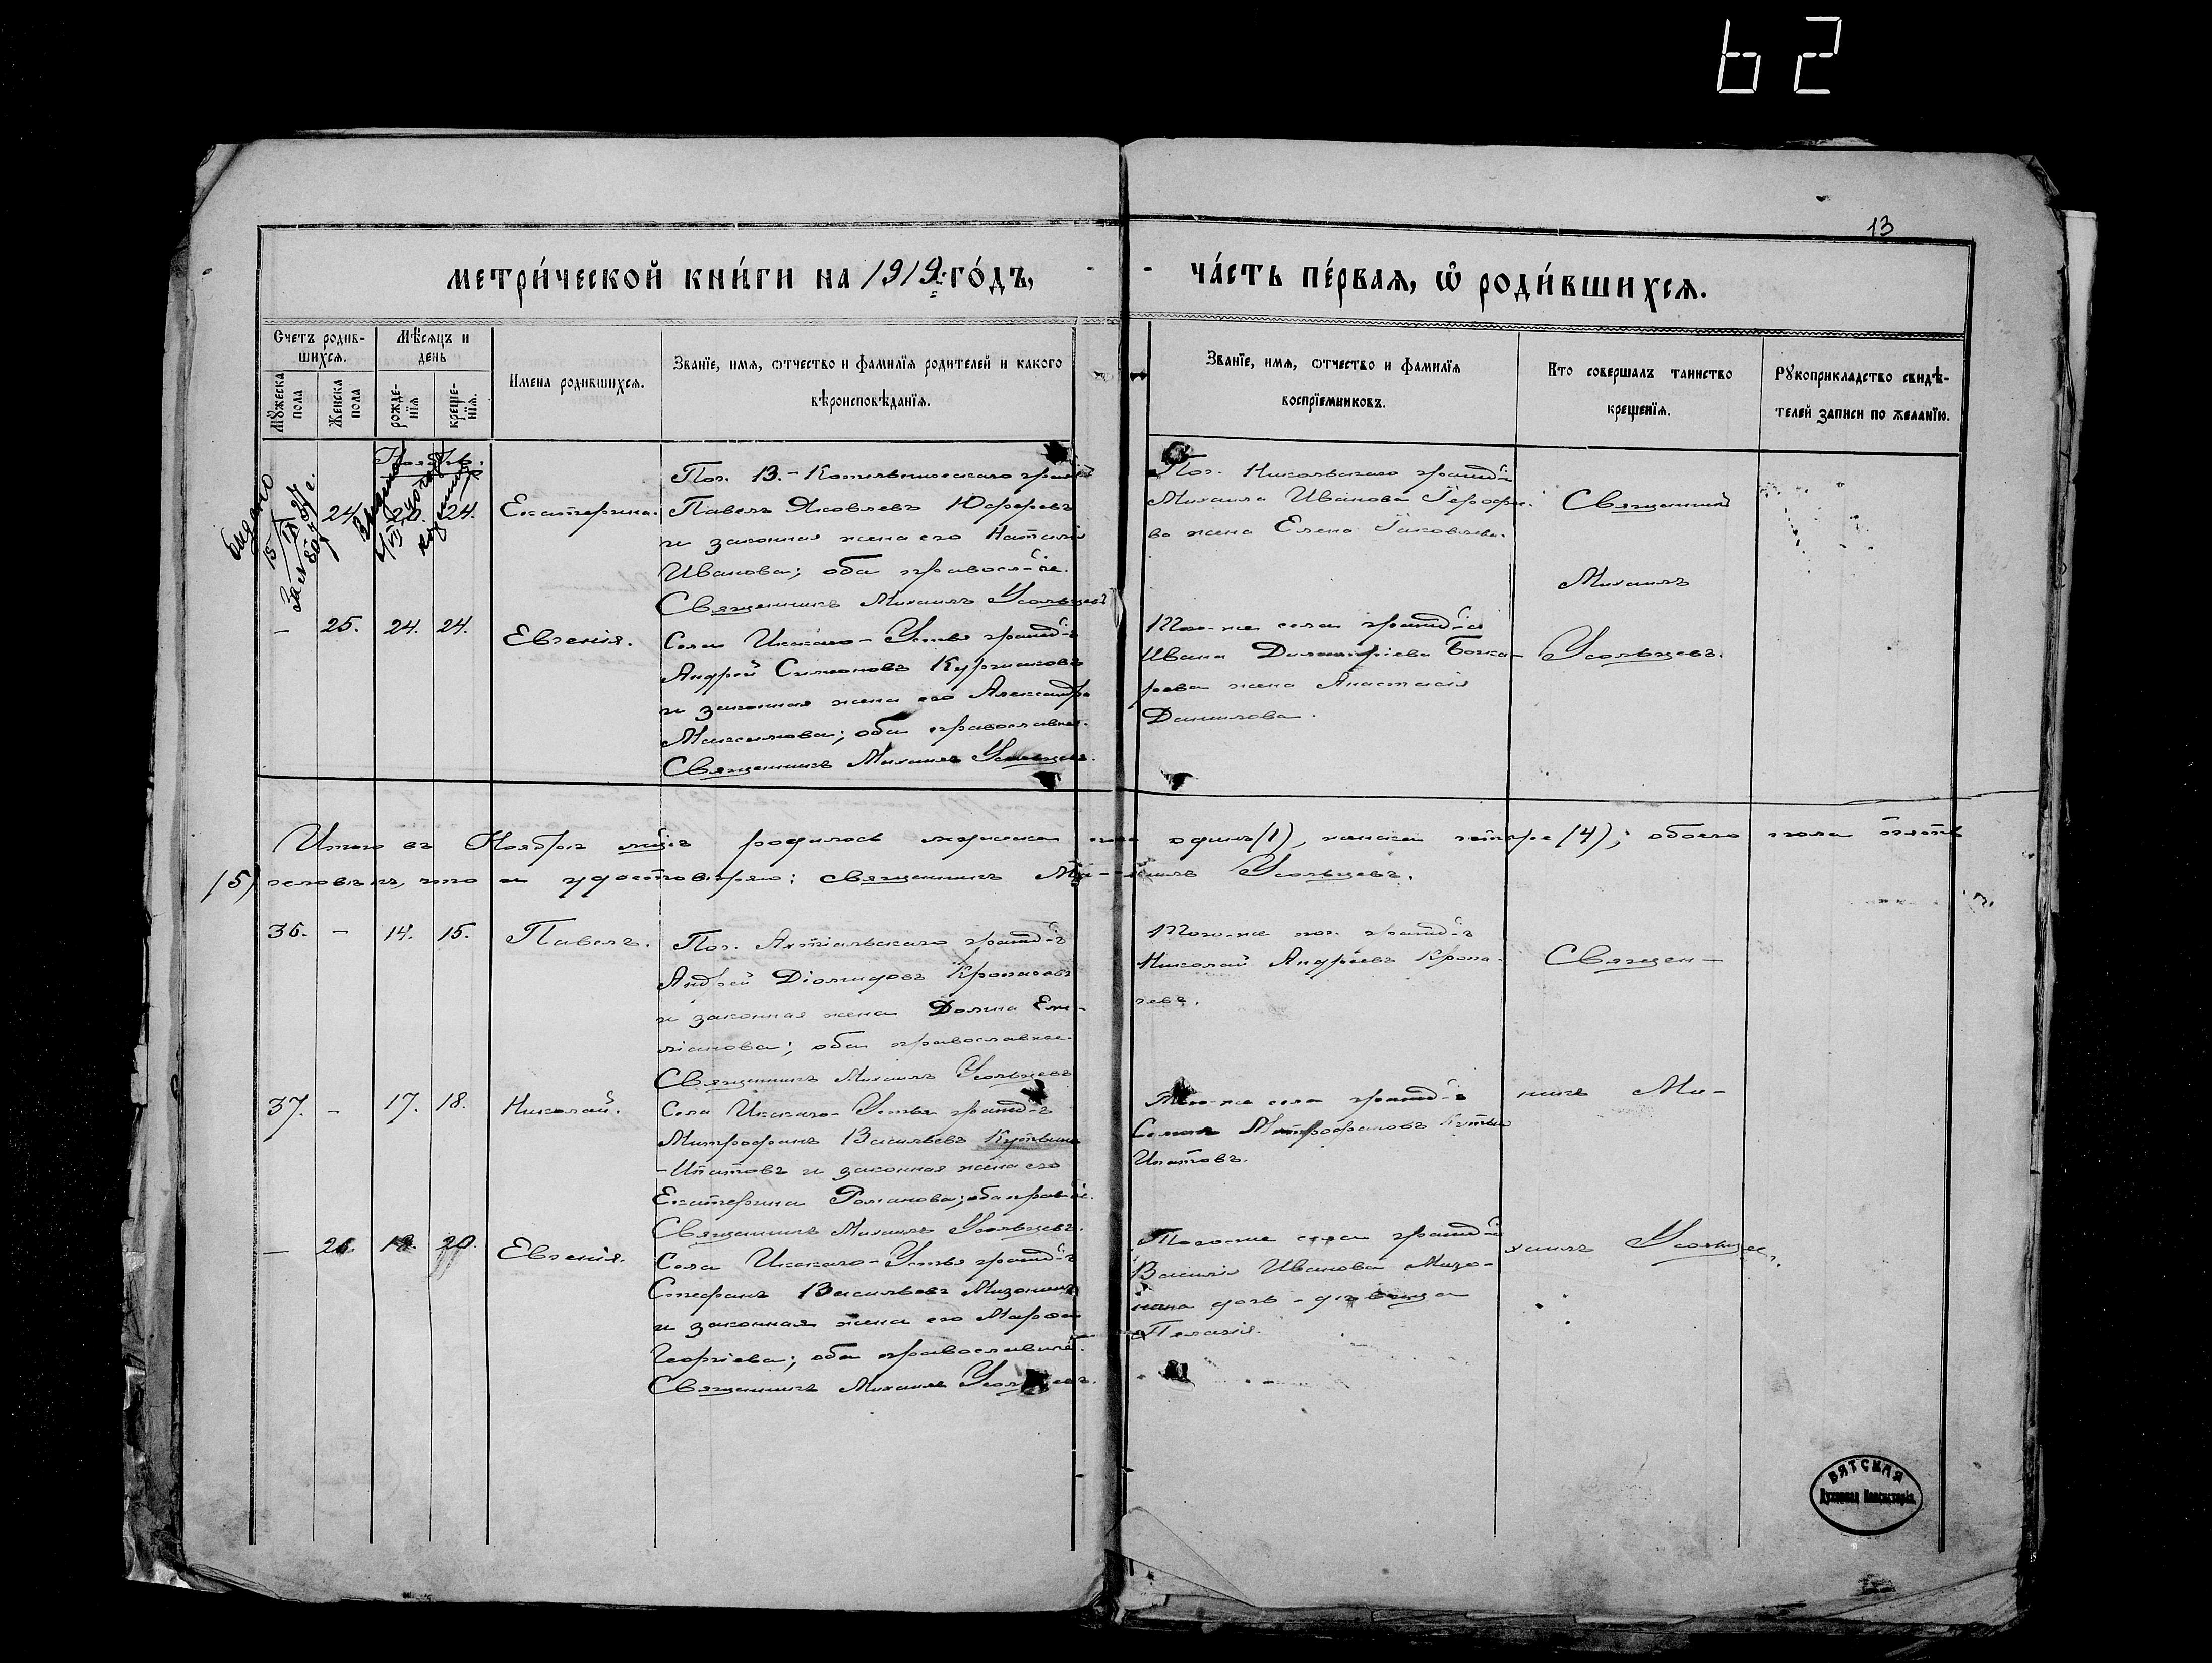 62
13
метри́ческой кни́ги на 1919 го́дъ,
ча́сть пе́рвая, ѡ҆ роди́вшихся.
Счетъ родив-
шихся.
Мѣсяцъ и
день
Имена родившихся.
Званїе, имя, ѿчество и фамилїя родителей и какого
вѣроисповѣданїя.
Званїе, имя, ѿчество и фамилїя
воспрїемниковъ.
Кто совершалъ таинство
крещенїя.
Рꙋкоприкладство свидѣ-
телей записи по желанїю.
Мꙋжеска
пола
Женска
пола
рожде-
нїя
креще-
нїя.
Выдано
Ноябрь.
24. 24. Екатерина.
Поч. В.-Котельническаго гражд-ъ
Павелъ Яковлевъ Юферевъ
и законная жена его Наталія
Иванова; оба правосл-ые.
Священникъ Михаилъ Усольцевъ
Поч. Никольскаго гражд-а
Михаила Иванова
ва жена Елена Іаковлева.
Священникъ
Михаилъ
Усольцевъ.
– 25. 24. 24. Евгенія.
Села Искаго-Устья гражд-ъ
Андрей Симоновъ
и законная жена его Александра
Максимова; оба православные.
Священникъ Михаилъ Усольцевъ.
Того-же села гражд-а
Ивана Димитріева Бочка-
рева жена Анастасія
Данилова.
Итого въ Ноябрѣ мѣцѣ родилось мужска пола одинъ (1), женска четыре (4); обоего пола пять
(5) человѣкъ, что и удостовѣряю: священникъ Михаилъ Усольцевъ.
36. – 14. 15. Павелъ.
Поч. гражд-ъ
Андрей Діомидовъ Кропачевъ
и законная жена Домна Еми-
ліанова; оба православные.
Священникъ Михаилъ Усольцевъ
Того-же поч. гражд-ъ
Николай Андреевъ Кропа-
чевъ.
Священ-
37. – 17. 18. Николай.
Села Искаго-Устья гражд-ъ
Митрофанъ Васильевъ Кутявинъ
-Ипатовъ и законная жена его
Екатерина Романова; оба прав-ые.
Священникъ Михаилъ Усольцевъ.
Того-же села гражд-ъ
Митрофановъ
Ипатовъ.
никъ Ми-
– 26. 19. 20. Евгенія.
Села Искаго-Устья гражд-ъ
Стефанъ Васильевъ Мизонинъ
и законная жена его Марфа
Георгіева; оба православные.
Священникъ Михаилъ Усольцевъ.
Того-же села гражд-а
Василія Иванова Мизо-
нина дочь-дѣвица
Пелагія.
хаилъ Усольцевъ.
ВЯТСКАЯ
Духовная Консисторія.